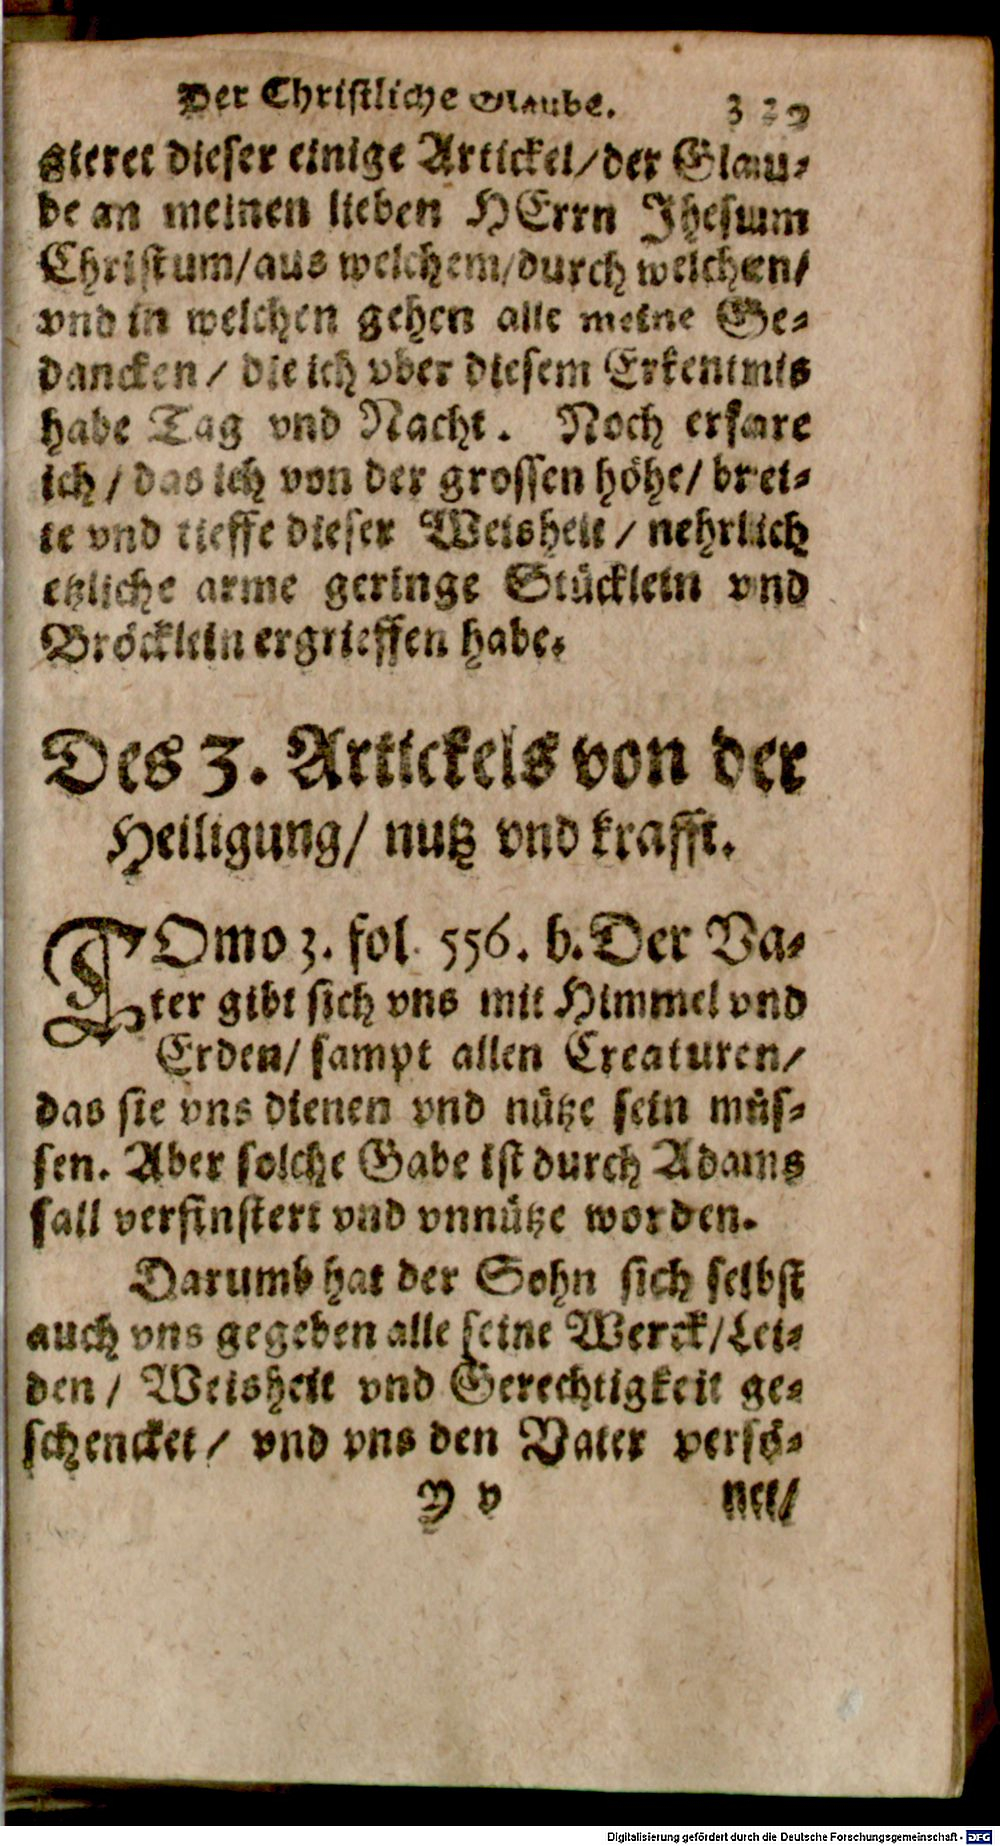 Der Christliche Glaube. 329
gieret dieser einige Artickel/der Glau-
be an meinen lieben HErrn Jhesum
Christum/aus welchem/durch welchen/
vnd in welchen gehen alle meine Ge-
dancken / die ich vber diesem Erkentnis
habe Tag vnd Nacht. Noch erfare
ich / das ich von der grossen höhe/ brei-
te vnd tieffe dieser Weisheit / nehrlich
etzliche arme geringe Stücklein vnd
Bröcklein ergrieffen habe.
Des 3. Artickels von der
Heiligung/ nutz vnd krafft.
TOmo 3. fol. 556. b. Der Va-
ter gibt sich vns mit Himmel vnd
Erden/ sampt allen Creaturen/
das sie vns dienen vnd nütze sein müs-
sen. Aber solche Gabe ist durch Adams
fall verfinstert vnd vnnütze worden.
Darumb hat der Sohn sich selbst
auch vns gegeben alle seine Werck/Lei-
den / Weisheit vnd Gerechtigkeit ge-
schencket / vnd vns den Vater versö-
Y v net/
Digitalisierung gefördert durch die Deutsche Forschungsgemeinschaft - DFG